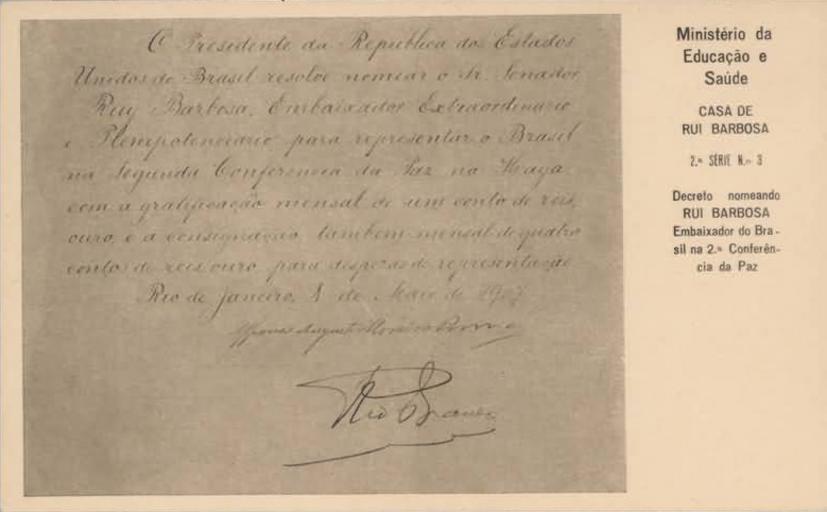 O Presidente da Republica dos Estados
Unidos do Brasil resolve nomear o Sr. Senador
Ruy Barbosa, Embaixador Extraordinario
e Plenipotenciario para representar o Brasil
na Segunda Conferencia da Paz na Haya,
com a gratificação mensal de um conto de reis,
ouro, e a consignação, tambem mensal de quatro
contos de reis ouro, para despezas de representação.
Rio de Janeiro, 8 de Maio de 1907
Affonso Augusto Moreira Penna
Rio Branco
Ministério da
Educação e
Saúde
CASA DE
RUI BARBOSA
2.ª SÉRIE N.º 3
Decreto nomeando
RUI BARBOSA
Embaixador do Bra-
sil na 2.ª Conferên-
cia da Paz